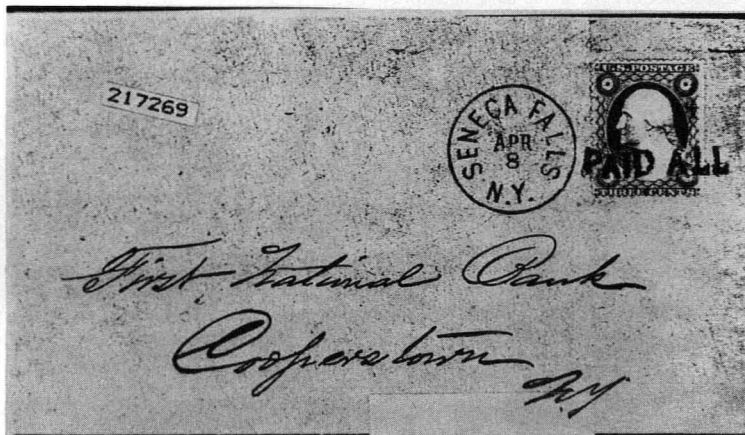 217269
SENECA FALLS
APR
8
N.Y.
U.S. POSTAGE
PAID ALL
First National Bank
Cooperstown
N.Y